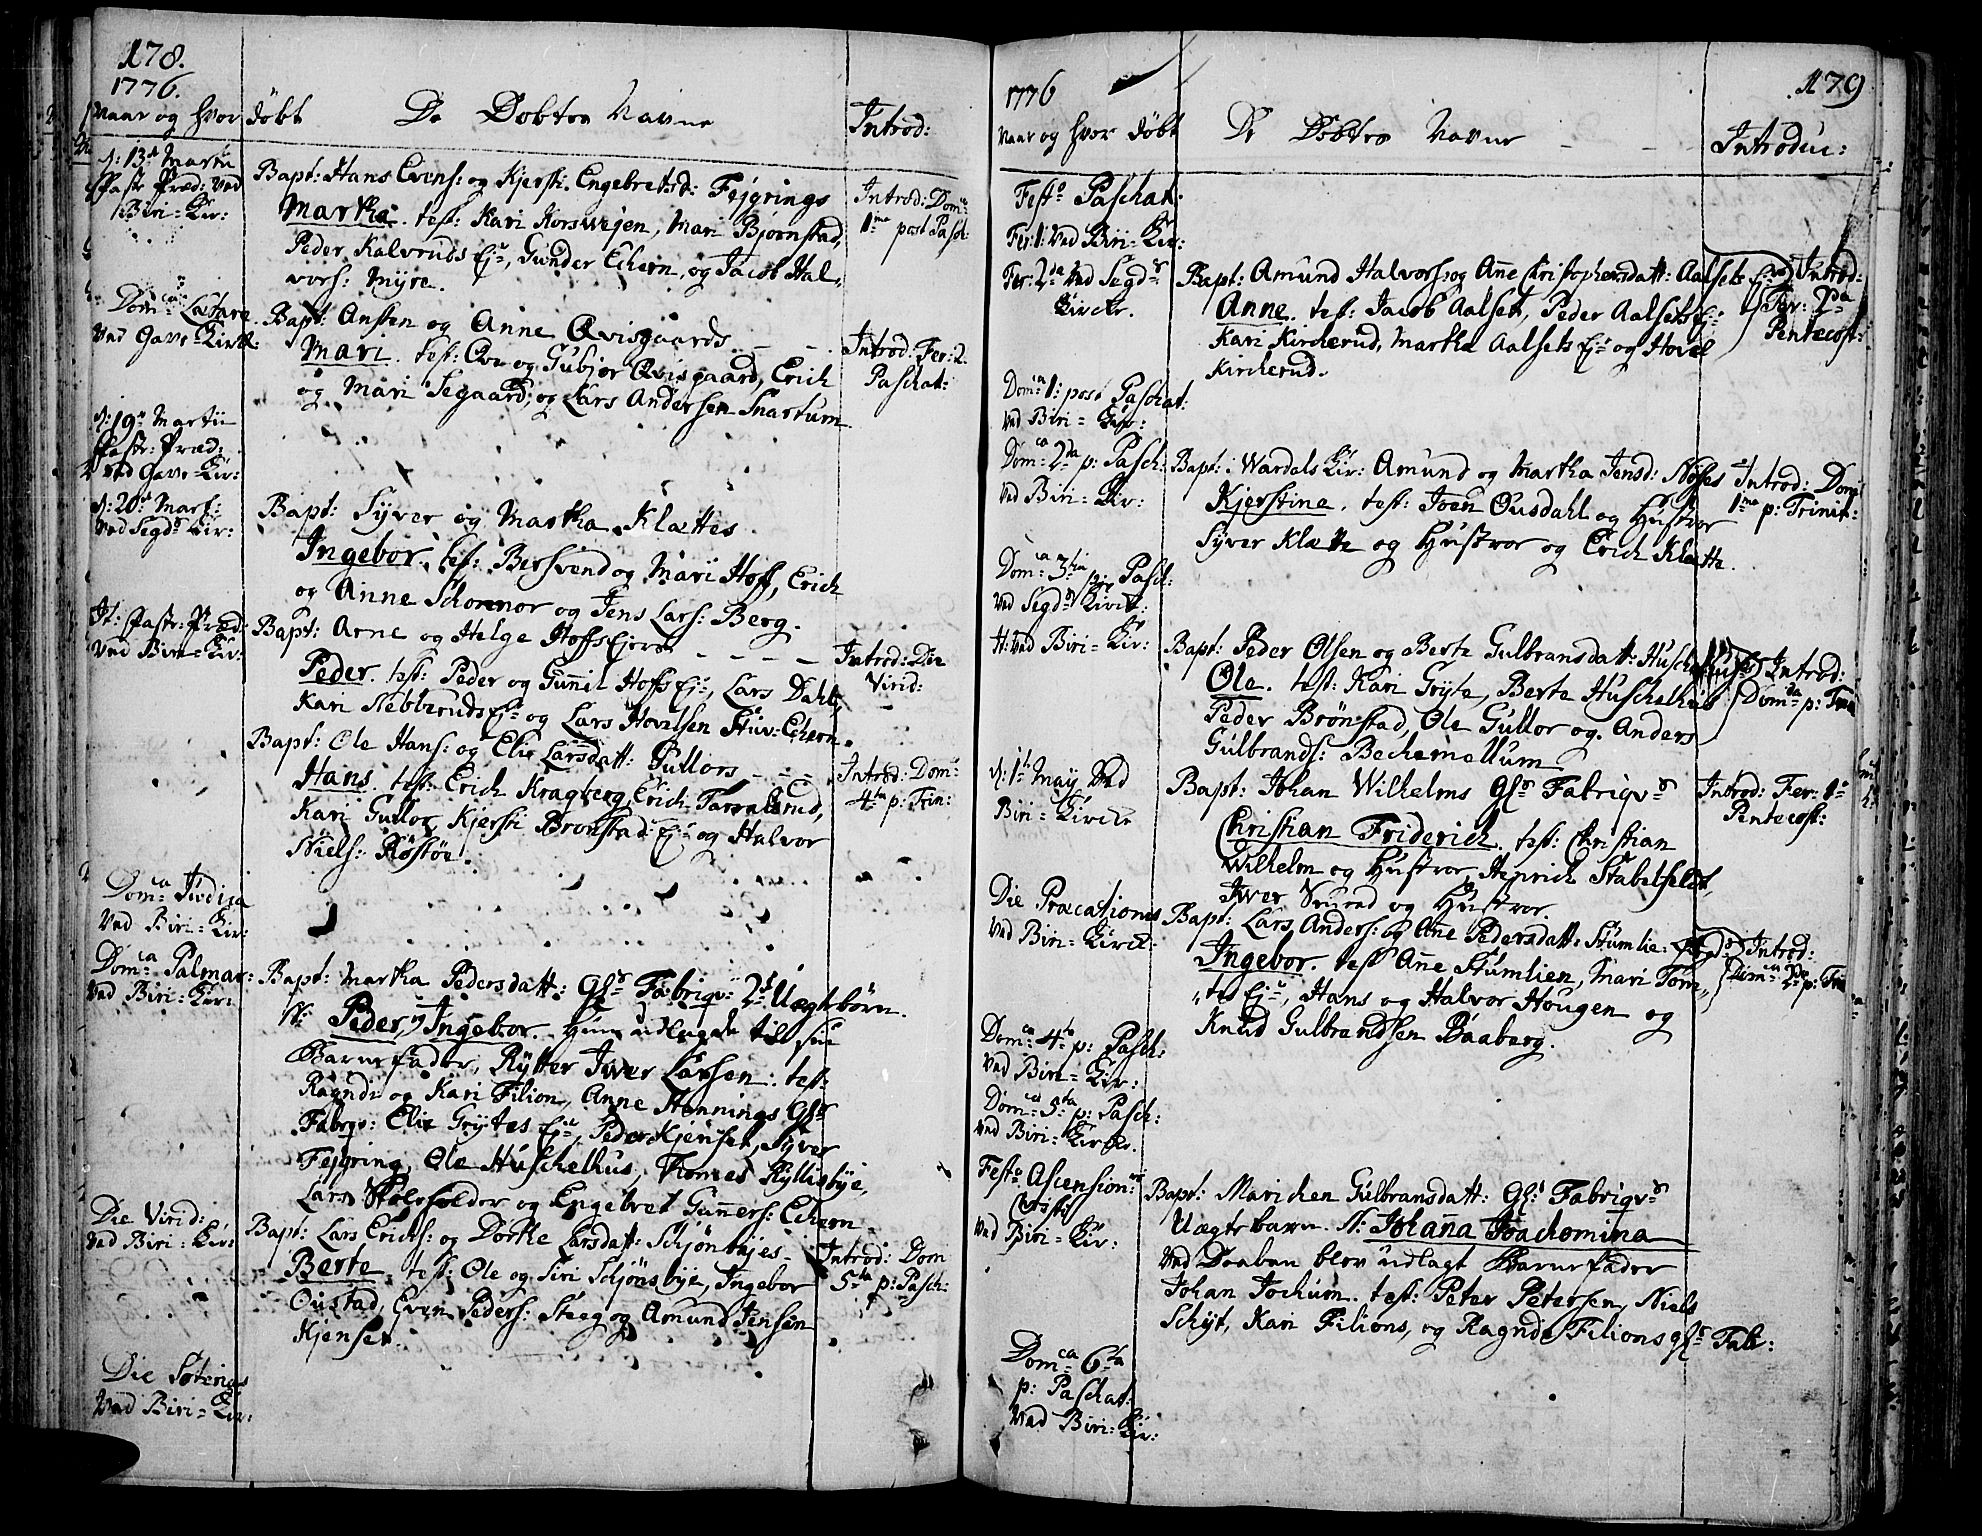 178.
1776.
Naar og hvor døbt De Døbtes Navne Introd:
d: 13 Martii
Pastr Præd: ved
Biri-Kir:
Bapt: Hans Evens: og Kjersti Engebretsd: Fejgrings
Martha. test: Kari Korsvejen, Mari Bjørnstad,
Peder Kalvruds Eje, Gunder Echern, og Jacob Hal-
vors: Myre.
Introd: Dom:
1ma post Pasch:
Domca Lætare
Ved Gave-Kirk:
Bapt: Ansten og Anne Qvisgaards
Mari. test: Ove og Gubjør Qvisgaard, Erich
og Mari Segaard, og Lars Andersen Snartum.
Introd: Fer: 2.
Paschat:
d: 19 Martii
Pastr: Præd:
Ved Gave-Kir:
d: 20 Mart:
Ved Segds Kir:
Bapt: Syver og Martha Klættes
Ingebor. test: Bersvend og Mari Hoff, Erich
og Anne Schonnor og Jens Lars: Berg.
It: Pastr: Præd:
Ved Biri-Kir:
Bapt: Arne og Helge Hoffs Ejere
Peder. test: Peder og Gunnil Hoffs Eje, Lars Dahl,
Kari Nebberuds Eje og Lars Hovelsen Stuv: Echern.
Introd: Die
Virid:
Bapt: Ole Hans: og Elie Larsdatt: Gullors
Hans. test: Erich Kragberg, Erich Tarralsrud,
Kari Gullor, Kjersti Bronstad Eje og Halvor
Niels: Røstøe.
Introd: Dom:
4ta p: Trin:
Domca Judica
Ved Biri-Kir:
Domca Palmar:
Ved Biri-Kir:
Bapt: Martha Pedersdatt: Gls Fabriqv: 2de Uægte børn.
N: Peder, og Ingebor. Hun udlagde til sin
Barnefader, Rytter Iwer Larsen. test:
Ragndi og Kari Filion, Anne Hennings Gls
Fabriqv: Elie Grytes Eje, Peder Kjenset, Syver
Fejgring, Ole Huschelhus, Thomes Kyllisbye,
Lars Skoleholder og Engebret Gunners: Echern
Die Virid:
Ved Biri-Kir:
Bapt: Lars Erichs: og Dorthe Larsdatt: Schjønsbyes
Berte. test: Ole og Siri Schjønsbye, Ingebor
Oustad, Even Peders: Steeg og Amund Jensen
Kjenset.
Introd: Dom
5ta p: Pasch:
Die Soteriæ
Ved Biri-Kir:
179
1776
Naar og hvor døbt De Døbtes Navne Introduc:
Festo Paschat:
Fer: 1: Ved Biri-Kir:
Fer: 2da Ved Segds
Kircke.
Bapt: Amund Halvors: og Anne Christophersdatt: Aalsets Eje
Anne. test: Jacob Aalset, Peder Aalsets Eje
Kari Kirckerud, Martha Aalsets Eje og Hovel
Kirckerud.
Introd:
Fer: 2da
Pentecost:
Domca 1: post Paschat:
Ved Biri-Kir:
Domca 2da p: Pasch:
Ved Biri-Kir:
Bapt: i Wardals Kir: Amund og Martha Jensd: Nøses
Kjerstine. test: Joen Ousdahl og Hustroe
Syver Klætte og Hustroe og Erich Klætte.
Introd: Dom
1ma p: Trinit:
Domca 3tia p: Pasch:
Ved Segds Kirck:
It: Ved Biri-Kir:
Bapt: Peder Olsen og Berte Gulbransdatt: Huschelhus
Ole. test: Kari Gryte, Berte Huschelhus
Peder Brønstad, Ole Gullor og Anders
Gulbrands: Bechemellum
Introd:
Domca p: Trin
d: 1 May Ved
Biri-Kircke
Bapt: Johan Wilhelms Gls Fabriqvs
Christian Friderich. test: Christian
Wilhelm og Hustroe, Henrich Stabelfeldt,
Iwer Svered og Hustroe.
Introd: Fer: 1
Pentecost:
Die Præcationes
Ved Biri-Kirck:
Bapt: Lars Anders: og Ane Pedersdatt: Stumlie:
Ingebor. test Ane Stumlien, Mari Tom-
tes Eje, Hans og Halvor Hougen og
Knud Gulbrandsen Baaberg.
Introd:
Domca 2da p: Trin
Domca 4ta p: Pasch:
Ved Biri-Kir:
Domca 5ta p: Pasch:
Ved Biri-Kircke.
Festo Ascension:
Christi
Ved Biri-Kir:
Bapt: Marichen Gulbransdatt: Gls Fabriqvs
Uægte barn. N: Johanna Joachomina
Ved Daaben blev udlagt Barnefader
Johan Jochum. test: Peter Petersen, Niels
Schyt, Kari Filions, og Ragndi Filions Gls Fab:
Domca 6ta
p: Paschat:
Ved Biri-Kir: